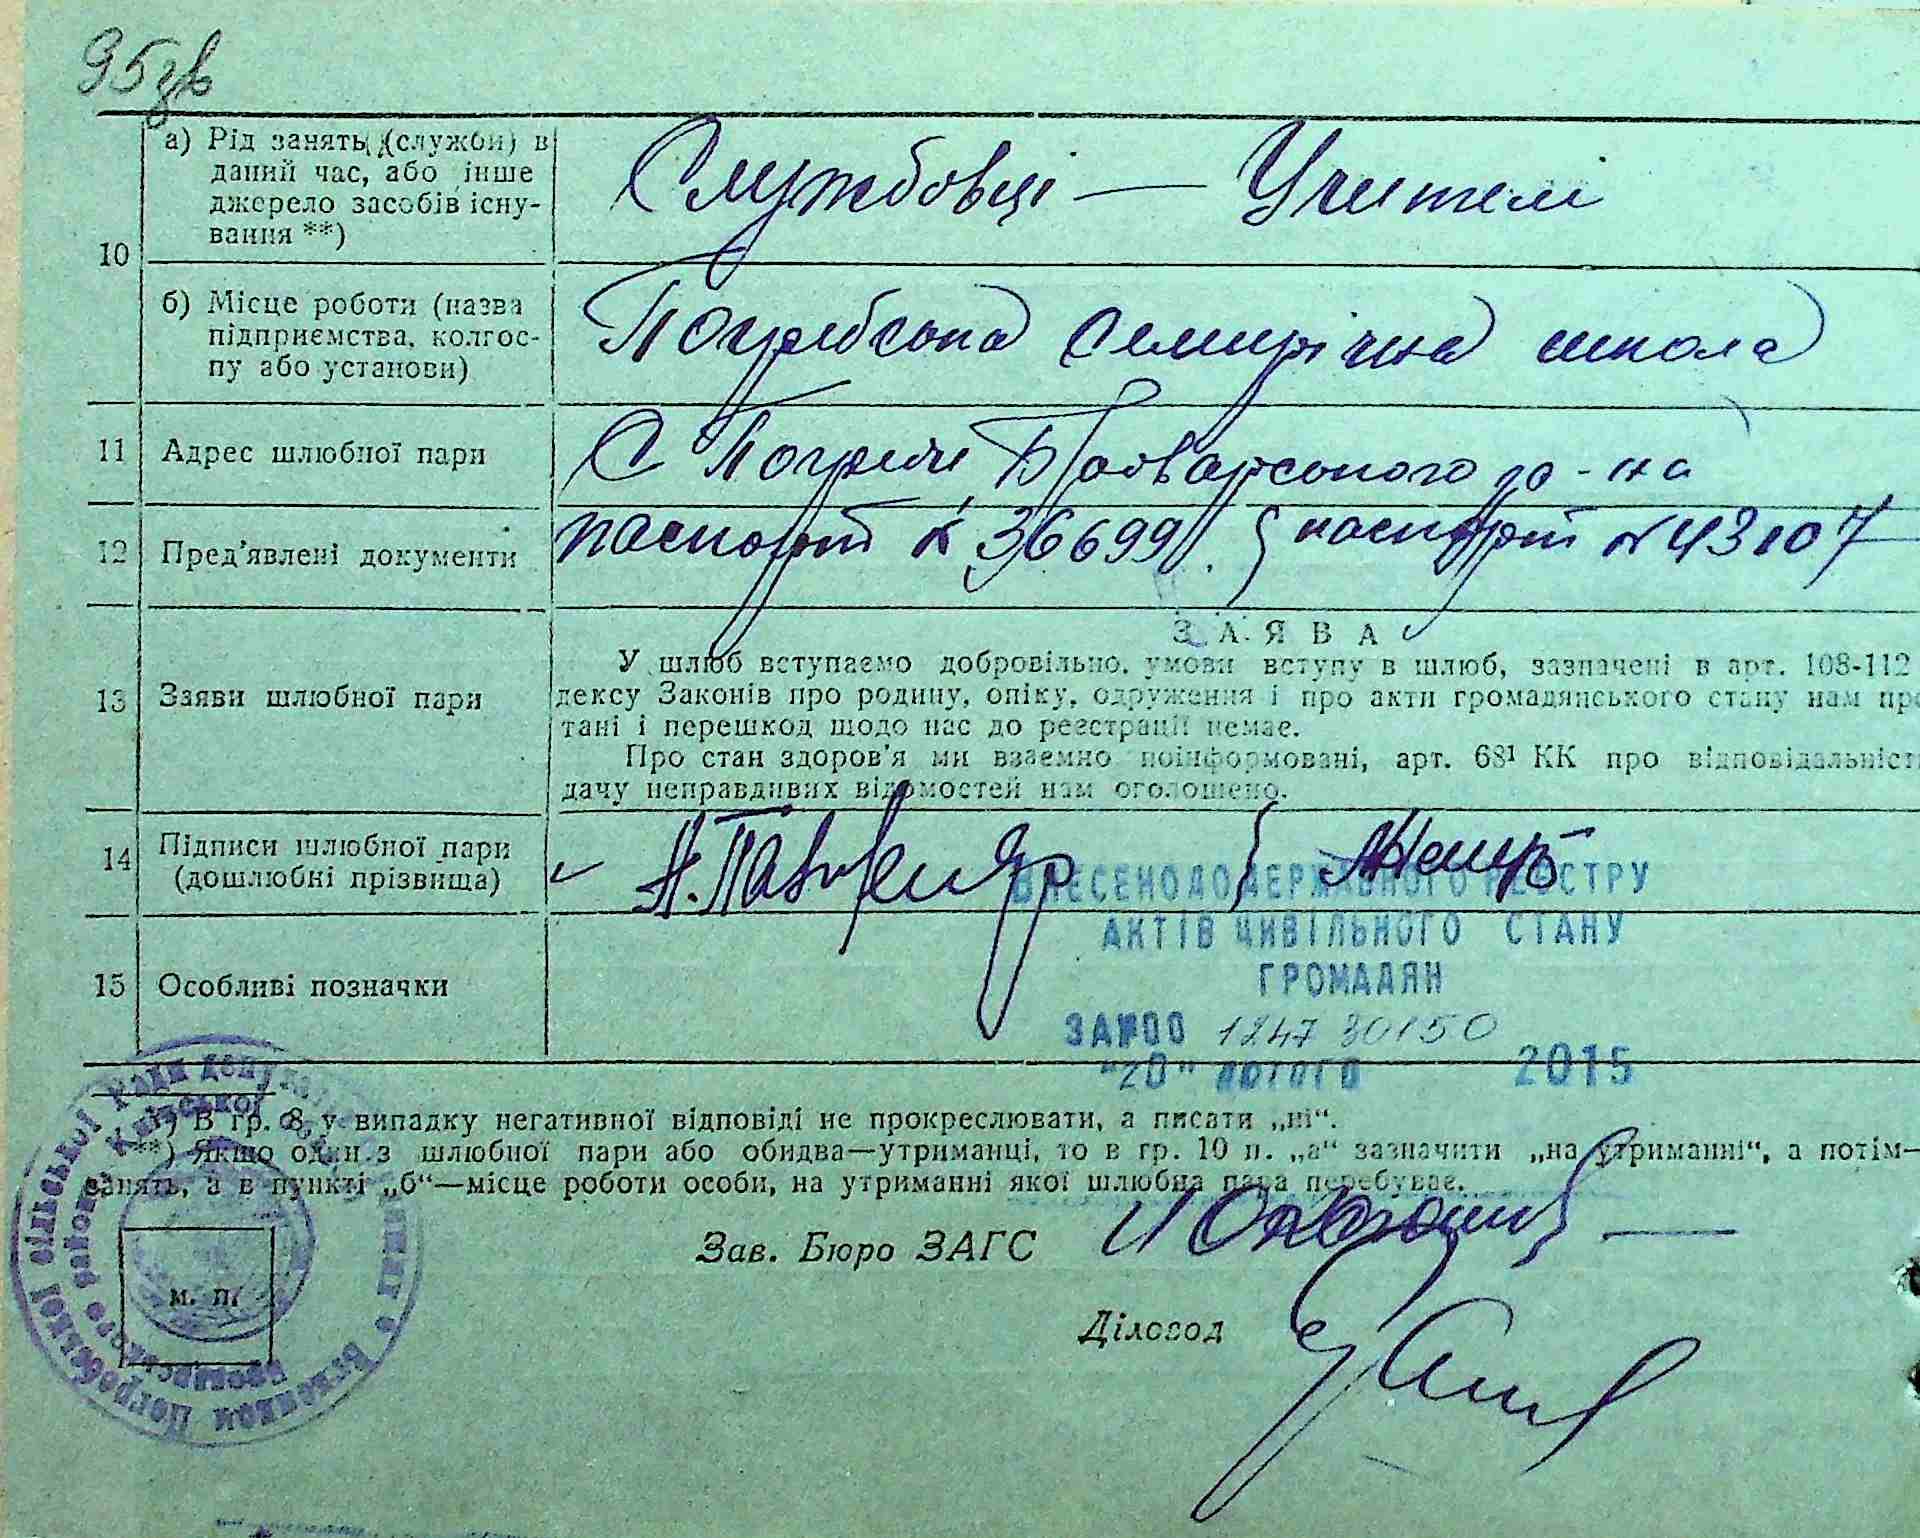 95зв
а) Рід занять (служби) в
даний час, або інше
джерело засобів існу-
вання **)
Службовці — Учителі
10
б) Місце роботи (назва
підприємства, колгос-
пу або установи)
Погребська семирічна школа
11 Адрес шлюбної пари
С Погреби, Броварського р-на
12 Пред'явлені документи
паспорт № 366991. паспорт № 43107
ЗАЯВА
13 Заяви шлюбної пари
У шлюб вступаємо добровільно, умови вступу в шлюб, зазначені в арт. 108-112
дексу Законів про родину, опіку, одруження і про акти громадянського стану нам про
тані і перешкод щодо нас до реєстрації немає.
Про стан здоров'я ми взаємно поінформовані, арт. 68¹ КК про відповідальність
дачу неправдивих відомостей нам оголошено.
14 Підписи шлюбної пари
(дошлюбні прізвища)
ВНЕСЕНО ДО ДЕРЖАВНОГО РЕЄСТРУ
АКТІВ ЦИВІЛЬНОГО СТАНУ
ГРОМАДЯН
15 Особливі позначки
ЗА №00 1247 30150
"20" лютого 2015
*) В гр. 8, у випадку негативної відповіді не прокреслювати, а писати „ні“.
**) Якщо один з шлюбної пари або обидва—утриманці, то в гр. 10 п. „а“ зазначити „на утриманні“, а потім—
занять, а в пункті „б“—місце роботи особи, на утриманні якої шлюбна пара перебуває.
Зав. Бюро ЗАГС
Діловод
м. п.
Виконком Погребської сільської Ради депутатів
Броварського району Київської обл.